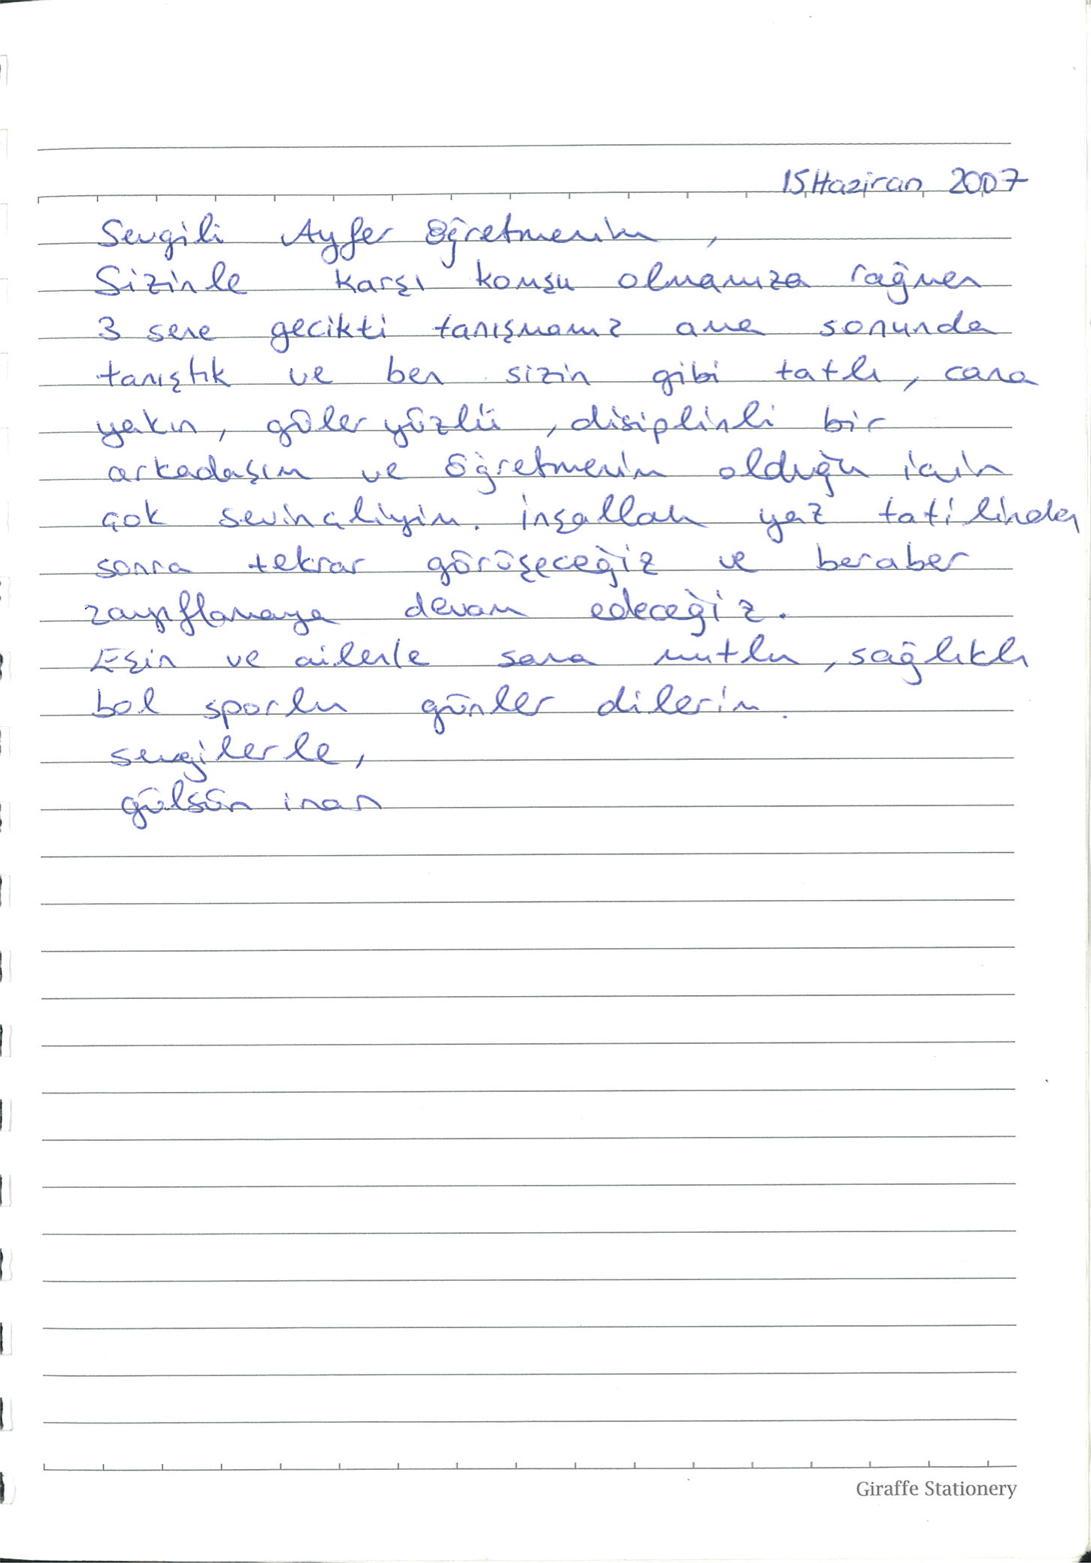 15 Haziran 2007
Sevgili Ayfer Öğretmenim,
Sizinle karşı komşu olmamıza rağmen
3 sene gecikti tanışmamız ama sonunda
tanıştık ve ben sizin gibi tatlı, cana
yakın, güler yüzlü, disiplinli bir
arkadaşım ve öğretmenim olduğu için
çok sevinçliyim. İnşallah yaz tatilinden
sonra tekrar görüşeceğiz ve beraber
zayıflamaya devam edeceğiz.
Eşin ve ailenle sana mutlu, sağlıklı
bol sporlu günler dilerim.
sevgilerle,
gülsün inan
Giraffe Stationery